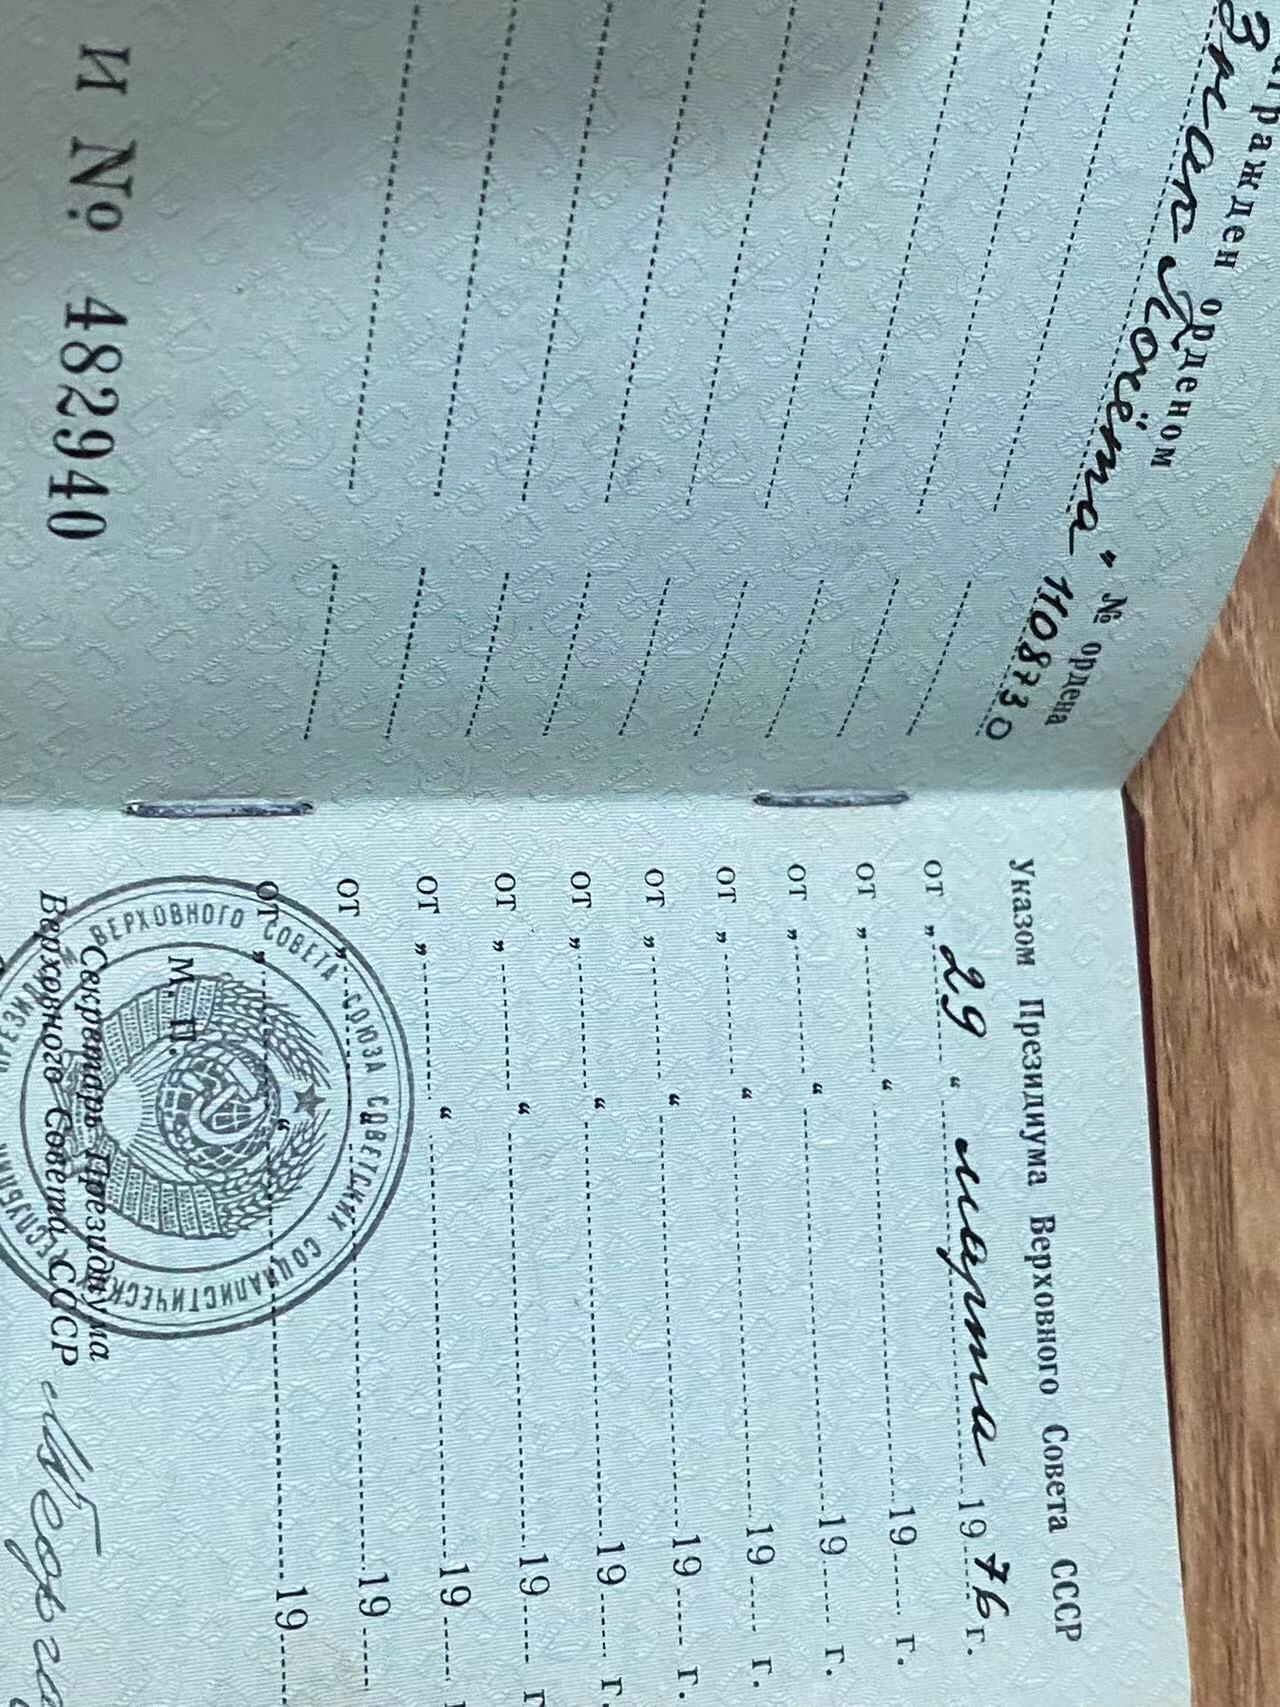 агражден орденом
№ ордена
„Знак Почёта“
110873 0
И № 482940
Указом Президиума Верховного Совета СССР
от „29“ марта 1976 г.
от „ “ 19 г.
от „ “ 19 г.
от „ “ 19 г.
от „ “ 19 г.
от „ “ 19 г.
от „ “ 19 г.
от „ “ 19
от „ 19
от „ “ 19
М. П.
Секретарь Президиума
Верховного Совета СССР
ПРЕЗИДИУМ ВЕРХОВНОГО СОВЕТА СОЮЗА СОВЕТСКИХ СОЦИАЛИСТИЧЕСКИХ РЕСПУБЛИК